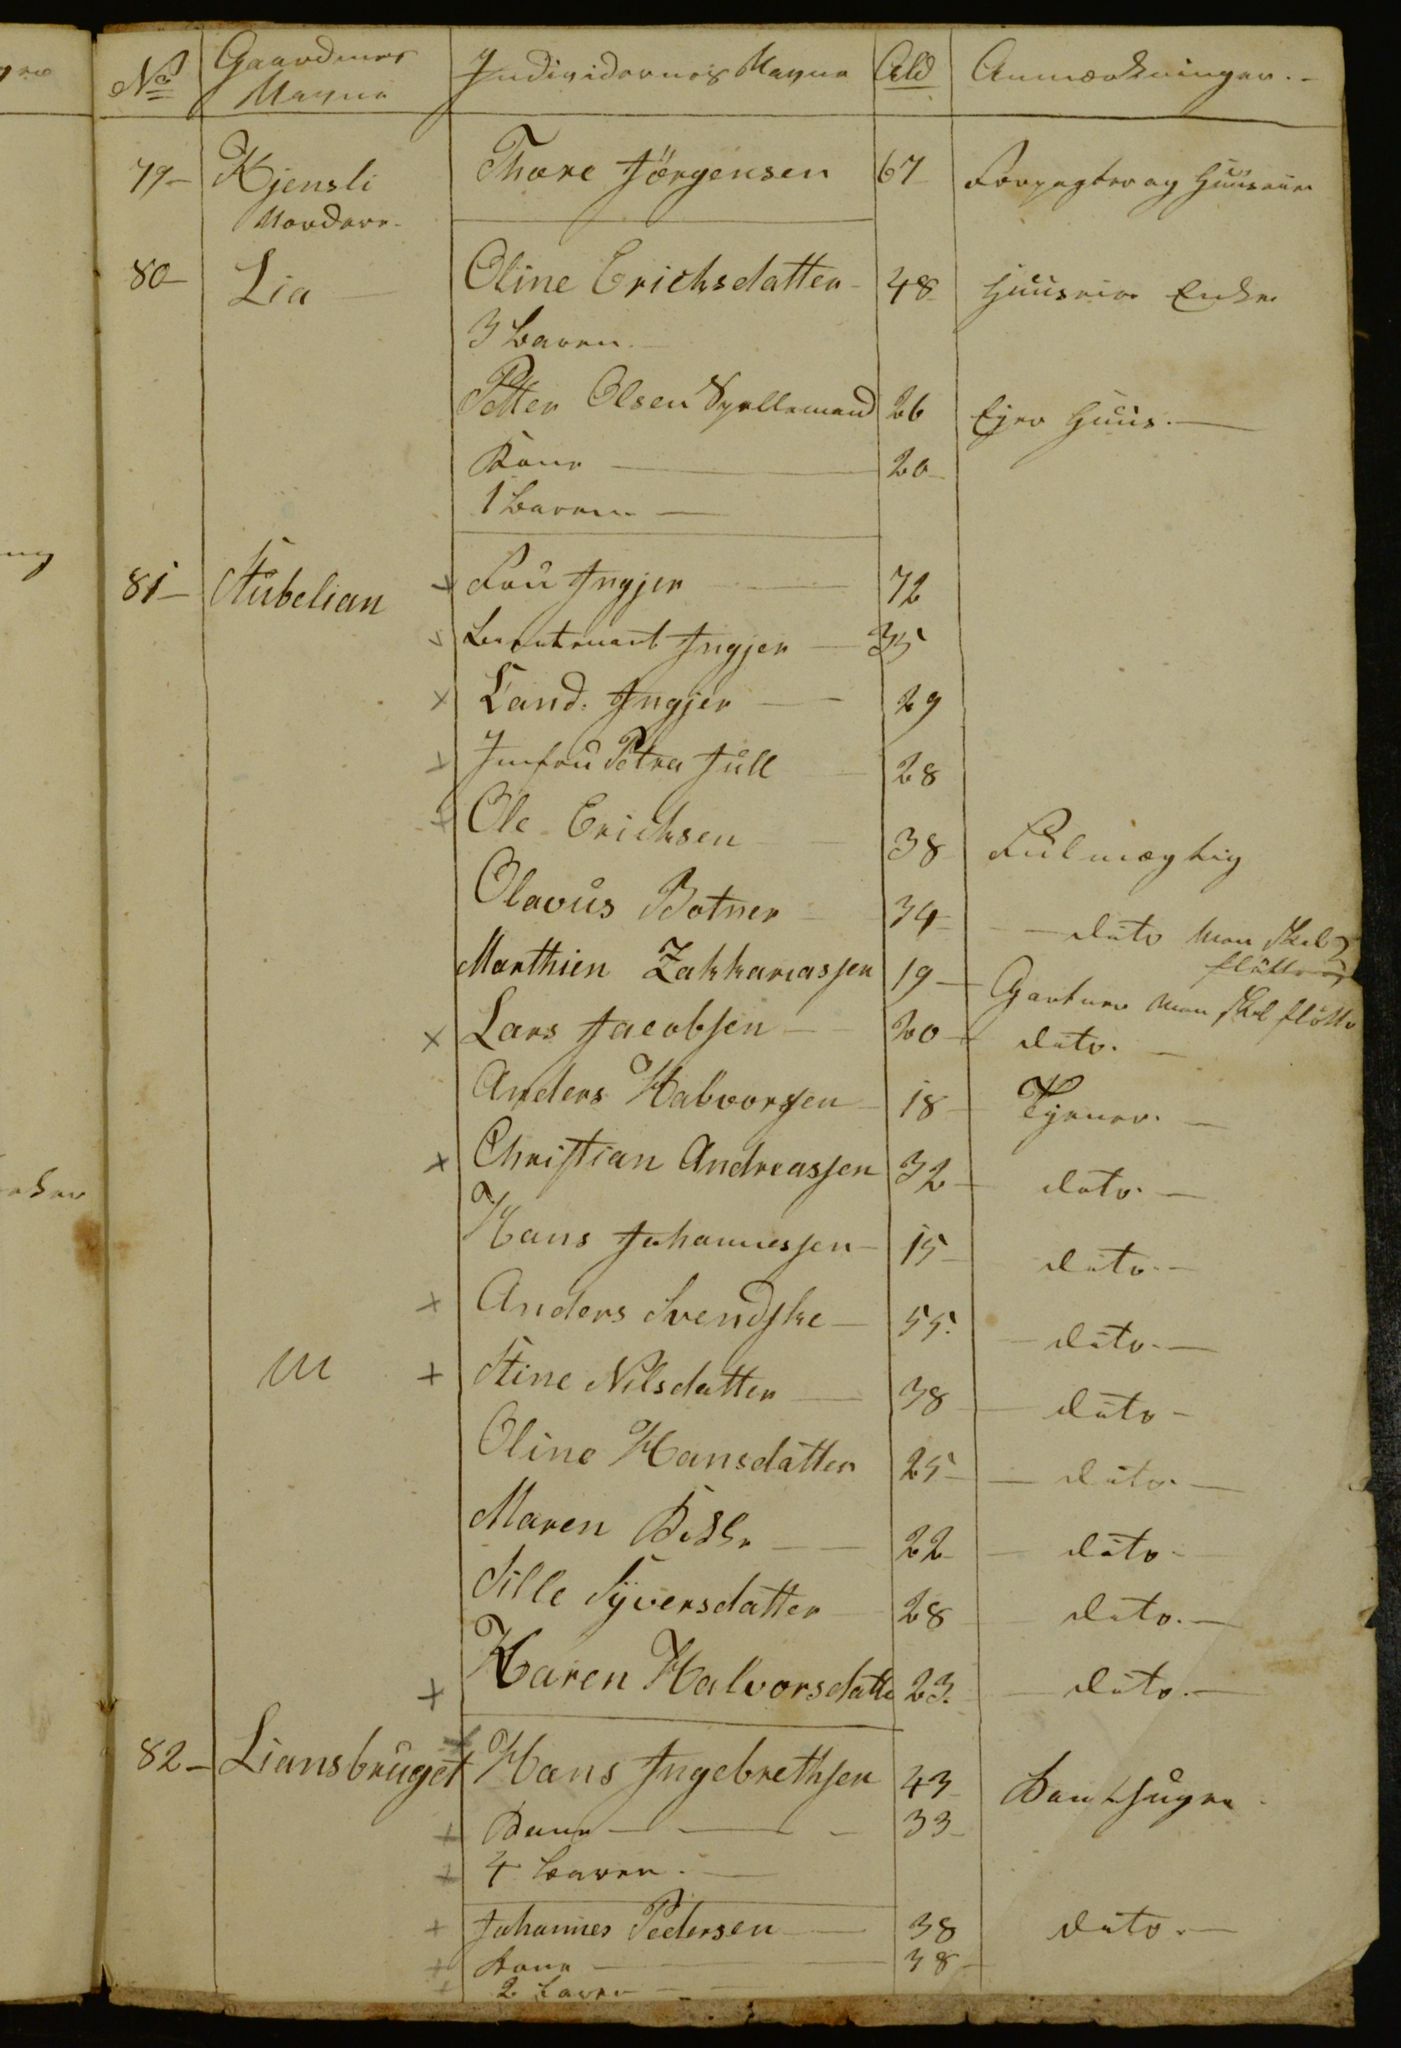 No Gaardenes Navne Individernes Navne Ald Anmærkninger.-
79- Kjensli Thore Jörgensen 67 Forpagter og Huuseier
Nordere.
80- Lia Oline Erichsdatter- 48 Huuseier Enke
3 Børen.
Petter Olsen Spellemand 26 Ejer Huus.-
Kone - 20-
1 Børen -
81- Stubelian Fru Ingjer - 72
Lieutenant Ingjer - 35
Cand. Ingjer - 29
Jmfru Petra Jull 28
Ole Erichsen 38 Fulmægtig
Olavus Botner 34- - dito men skal
flötte
Marthien Zakkariassen 19- Gartner men skal flötte
Lars Jacobsen - 20- dito. -
Anders Halvorsen - 18 Tjener. -
Christian Andreassen 32- dito. -
Hans Johannessen- 15- dito.-
Anders Svendske- 55. - dito.-
Stine Nilsdatter - 38 - dito-
Oline Hansdatter 25- - dito.-
Maren - 22 - dito-
Sille Syversdatter 28 dito.-
Karen Halvorsdatte 23. - dito.-
82- Liansbruget Hans Ingebrethsen 43
Kone - - 33-
4 Børen. -
Johannes Pedersen - 38 dito.-
Kone - 38-
2 Børen - -